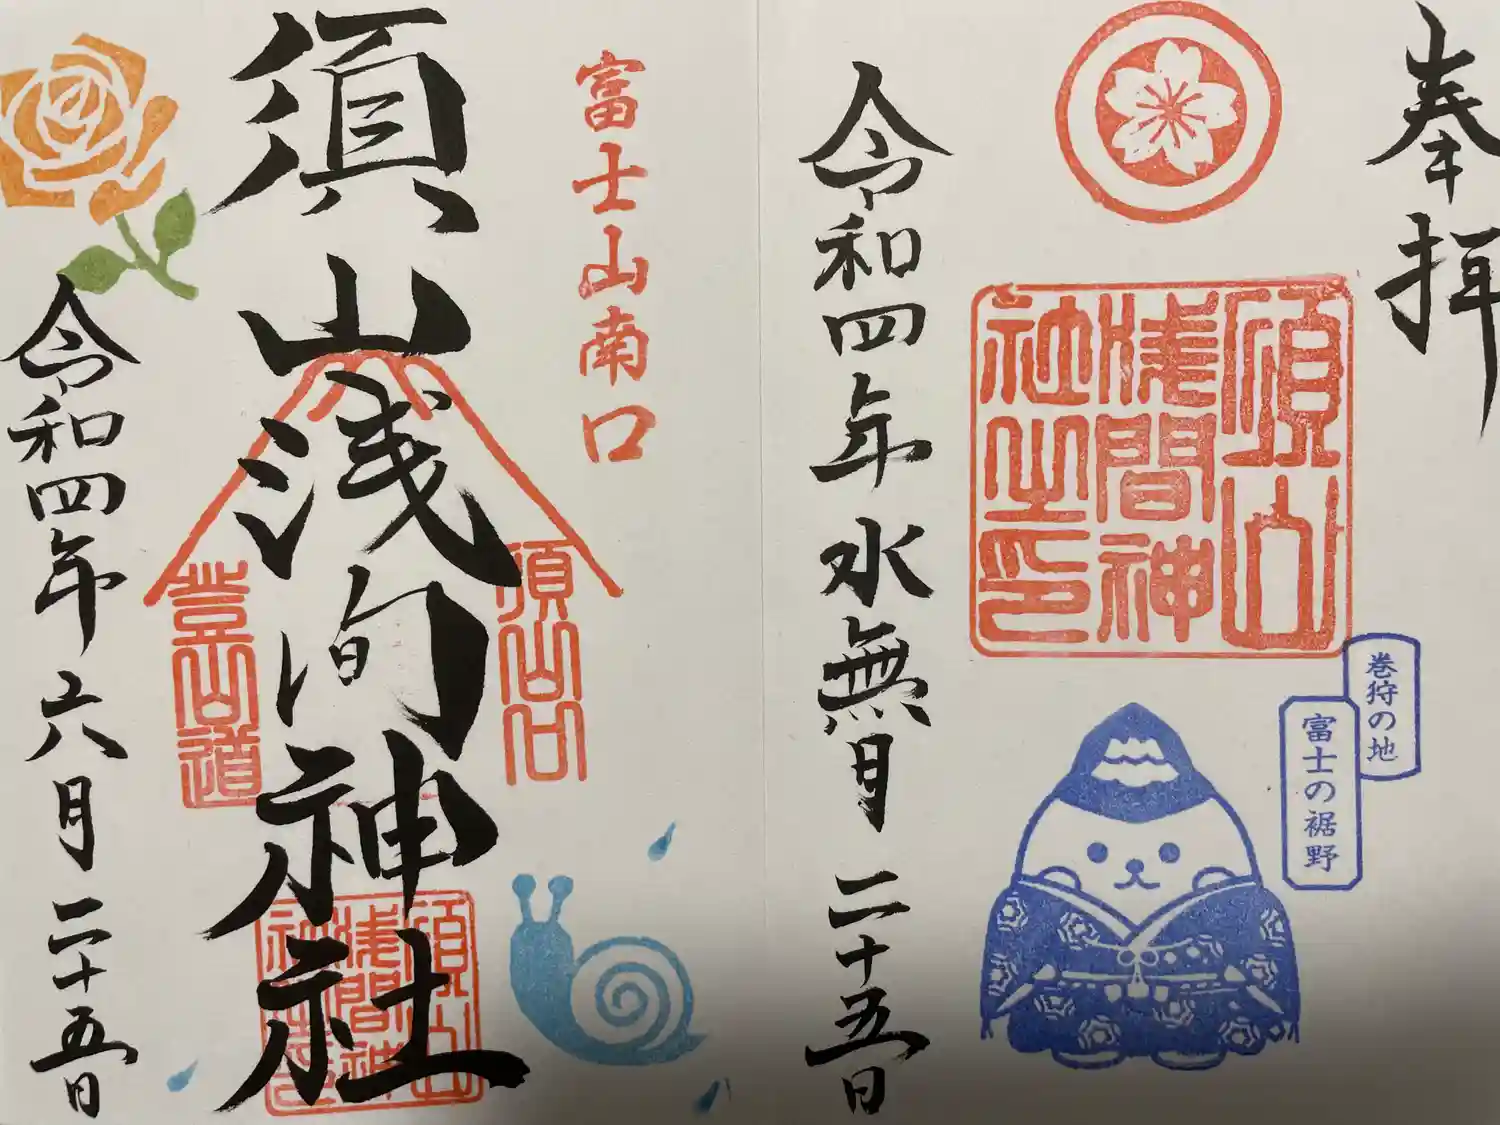 奉拝
須山
浅間神
社之印
令和四年水無月二十五日
巻狩の地
富士の裾野
富士山南口
須山浅間神社
須山口
登山道
須山
浅間神
社之印
令和四年六月二十五日